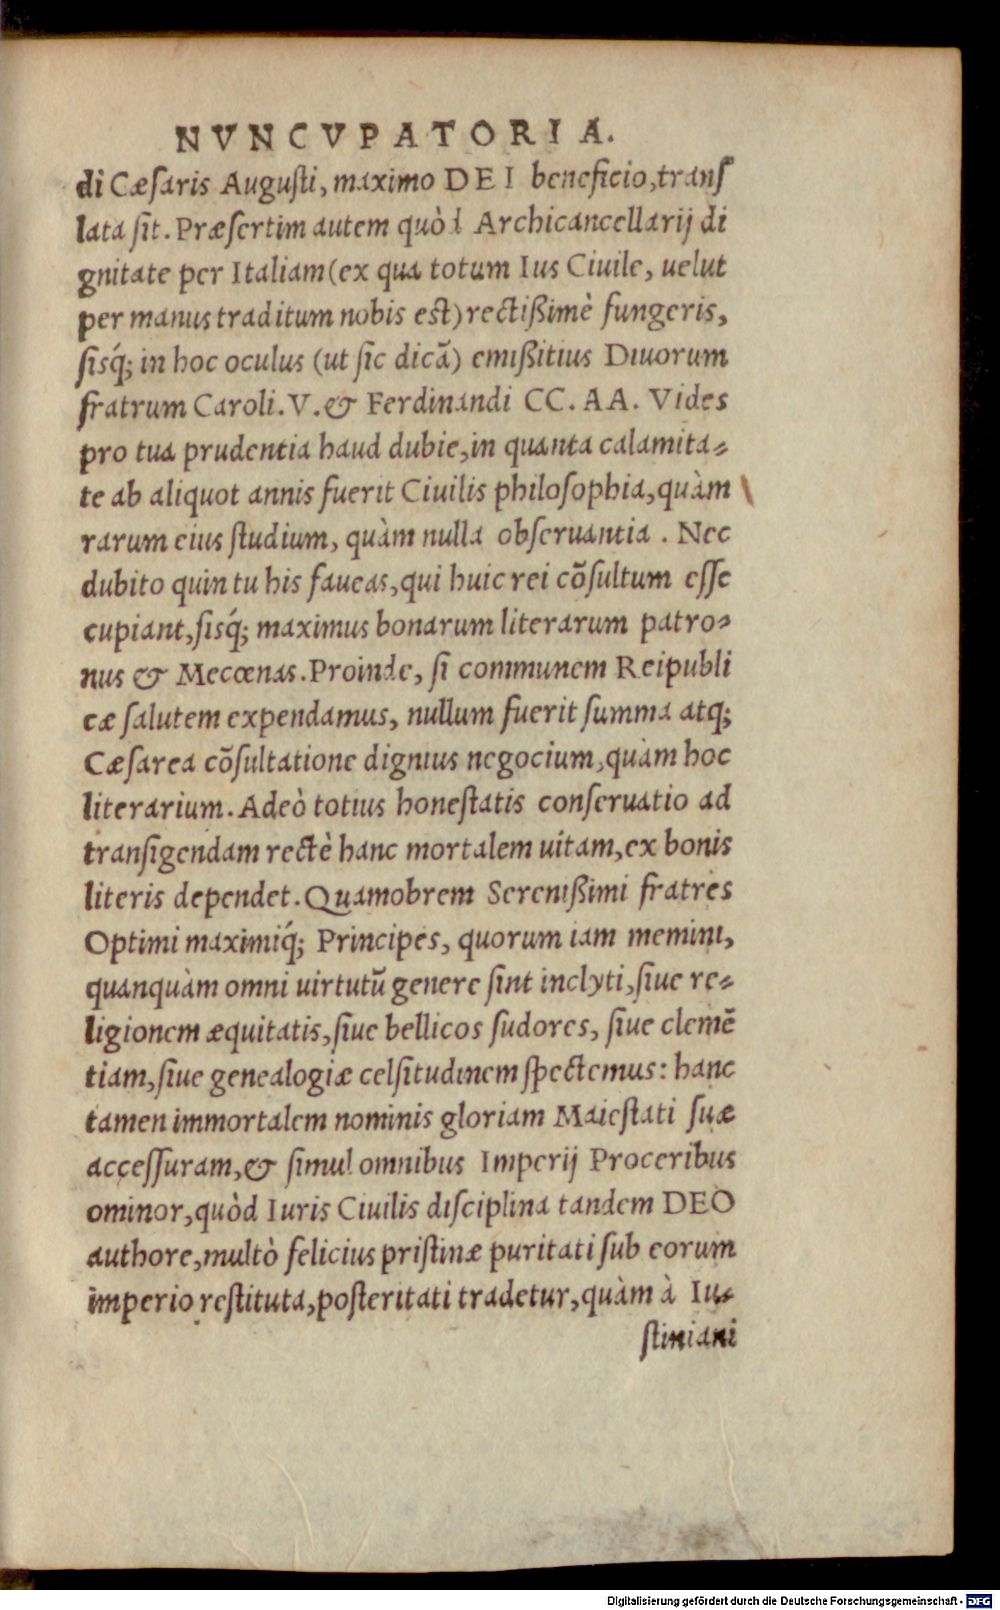 NVNCVPATORIA.
di Cæſaris Auguſti, maximo DEI beneficio, tranſ
lata ſit. Præſertim autem quòd Archicancellarij di
gnitate per Italiam (ex qua totum Ius Ciuile, uelut
per manus traditum nobis est) rectißimè fungeris,
ſisq́; in hoc oculus (ut ſic dicā) emißitius Diuorum
fratrum Caroli. V. & Ferdinandi CC. AA. Vides
pro tua prudentia haud dubie, in quanta calamita-
te ab aliquot annis fuerit Ciuilis philoſophia, quàm
rarum eius ſtudium, quàm nulla obſeruantia. Nec
dubito quin tu his faueas, qui huic rei cōſultum eſſe
cupiant, ſisq́; maximus bonarum literarum patro-
nus & Mecœnas. Proinde, ſi communem Reipubli
cæ ſalutem expendamus, nullum fuerit ſumma atq;
Cæſarea cōſultatione dignius negocium, quàm hoc
literarium. Adeò totius honeſtatis conſeruatio ad
tranſigendam rectè hanc mortalem uitam, ex bonis
literis dependet. Quamobrem Serenißimi fratres
Optimi maximiq́; Principes, quorum iam memini,
quanquàm omni uirtutū genere ſint inclyti, ſiue re-
ligionem æquitatis, ſiue bellicos ſudores, ſiue clemē
tiam, ſiue genealogiæ celſitudinem ſpectemus: hanc
tamen immortalem nominis gloriam Maieſtati ſuæ
acceſſuram, & ſimul omnibus Imperij Proceribus
ominor, quòd Iuris Ciuilis diſciplina tandem DEO
authore, multò felicius priſtinæ puritati ſub eorum
imperio reſtituta, poſteritati tradetur, quàm à Iu-
ſtiniani
Digitalisierung gefördert durch die Deutsche Forschungsgemeinschaft - DFG